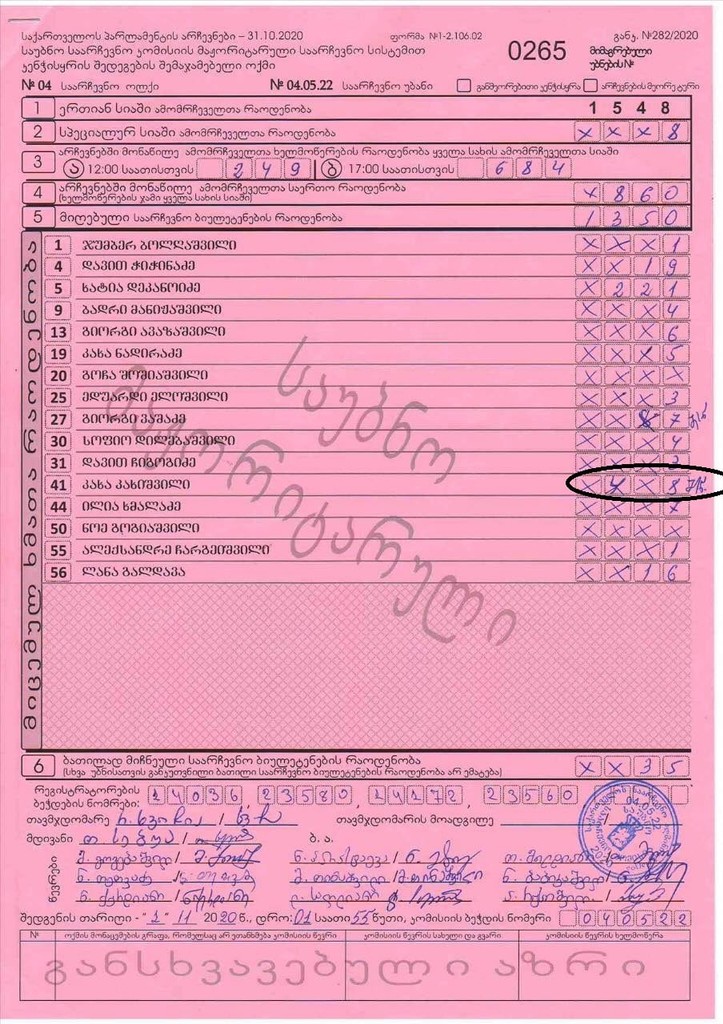 საქართველოს პარლამენტის არჩევნები – 31.10.2020 ფორმა №1-2.106.02 განკ. №282/2020
საუბნო საარჩევნო კომისიის მაჟორიტარული საარჩევნო სისტემით 0265 მიმაგრებული
კენჭისყრის შედეგების შემაჯამებელი ოქმი უბნების№
№ 04 საარჩევნო ოლქი № 04.05.22 საარჩევნო უბანი განმეორებითი კენჭისყრა არჩევნების მეორე ტური
1 ერთიან სიაში ამომრჩეველთა რაოდენობა 1 5 4 8
2 სპეციალურ სიაში ამომრჩეველთა რაოდენობა X X X 8
3 არჩევნებში მონაწილე ამომრჩეველთა ხელმოწერების რაოდენობა ყველა სახის ამომრჩეველთა სიაში
ა 12:00 საათისთვის 2 4 9 ბ 17:00 საათისთვის 6 8 4
4 არჩევნებში მონაწილე ამომრჩეველთა საერთო რაოდენობა X 8 6 0
(ხელმოწერების ჯამი ყველა სახის სიაში)
5 მიღებული საარჩევნო ბიულეტენების რაოდენობა 1 3 5 0
მიცემულ ხმათა რაოდენობა
1 ჯუმბერ ბოლდაშვილი X X X 1
4 დავით ჭიჭინაძე X X 1 9
5 ხატია დეკანოიძე X 2 2 1
9 ბადრი მანიჟაშვილი X X X 4
13 გიორგი ავაზაშვილი X X X 6
19 კახა ნადირაძე X X X 5
20 გოჩა შოშიაშვილი X X X X
25 ედუარდი ელოშვილი X X X 3
27 გიორგი ვაშაძე X X 7
30 სოფიო დილებაშვილი X X X 4
31 დავით ჩიგოგიძე X X X 2
41 კახა კახიშვილი X 4 X 8
44 ილია ხმალაძე X X X 7
50 ნოე გოგიაშვილი X X X X
55 ალექსანდრე ჩარგეიშვილი X X X 1
56 ლანა გალდავა X X 1 6
საუბნო
მაჟორიტარული
6 ბათილად მიჩნეული საარჩევნო ბიულეტენების რაოდენობა X X 3 5
(სხვა უბნისათვის განკუთვნილი ბათილი საარჩევნო ბიულეტენების რაოდენობა არ ემატება)
რეგისტრატორების
ბეჭდების ნომრები: 14036 23580 14172 23560
თავმჯდომარე თავმჯდომარის მოადგილე
მდივანი ბ.ა.
წევრები
შედგენის თარიღი - "1" 11 2020წ., დრო: 01 საათი 53 წუთი, კომისიის ბეჭდის ნომერი 040522
№ ოქმის მონაცემების გრაფა, რომელსაც არ ეთანხმება კომისიის წევრი კომისიის წევრის სახელი და გვარი კომისიის წევრის ხელმოწერა
განსხვავებული აზრი